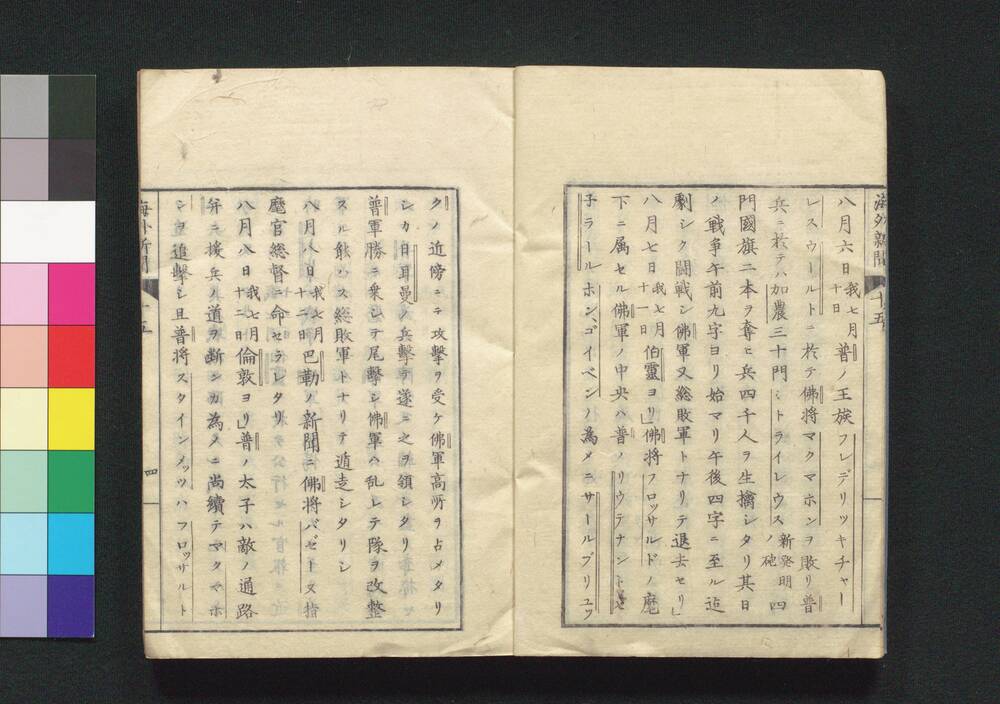 海外新聞
十五
八月六日我七月十日普ノ王族フレデリツキチャー
レスウールトニ於テ佛将マクマホンヲ敗リ普
兵ニ於テハ加農三十門ミトライレウス新発明ノ砲四
門國旗二本ヲ奪ヒ兵四千人ヲ生擒シタリ其日
ノ戦争午前九字ヨリ始マリ午後四字ニ至ル迠
劇シク闘戦シ佛軍又総敗軍トナリテ退去セリ」
八月七日我七月十一日伯靈ヨリ」佛将フロッサルドノ麾
下ニ属セル佛軍ノ中央ハ普ノリウテナントゼ
子ラールホンゴイベンノ為メニサールブリユッ
クノ近傍ニテ攻撃ヲ受ケ佛軍高所ヲ占メタリ
シカ日耳曼ノ兵撃テ遂ニ之ヲ領シタリ
普軍勝ニ乗シテ尾撃シ佛軍ハ乱レテ隊ヲ改整
スル能ハス総敗軍トナリテ遁走シタリシ
八月八日我七月十二日巴勒ノ新聞ニ佛将バゼーヌ指
麾官総督ニ命セラレタリ
八月八日我七月十二日倫敦ヨリ」普ノ太子ハ敵ノ通路
幷ニ援兵ノ道ヲ断シカ為メニ尚續テマクマホ
ンヲ追撃シ且普将スタインメッツハフロッサルト
海外新聞
十五
四